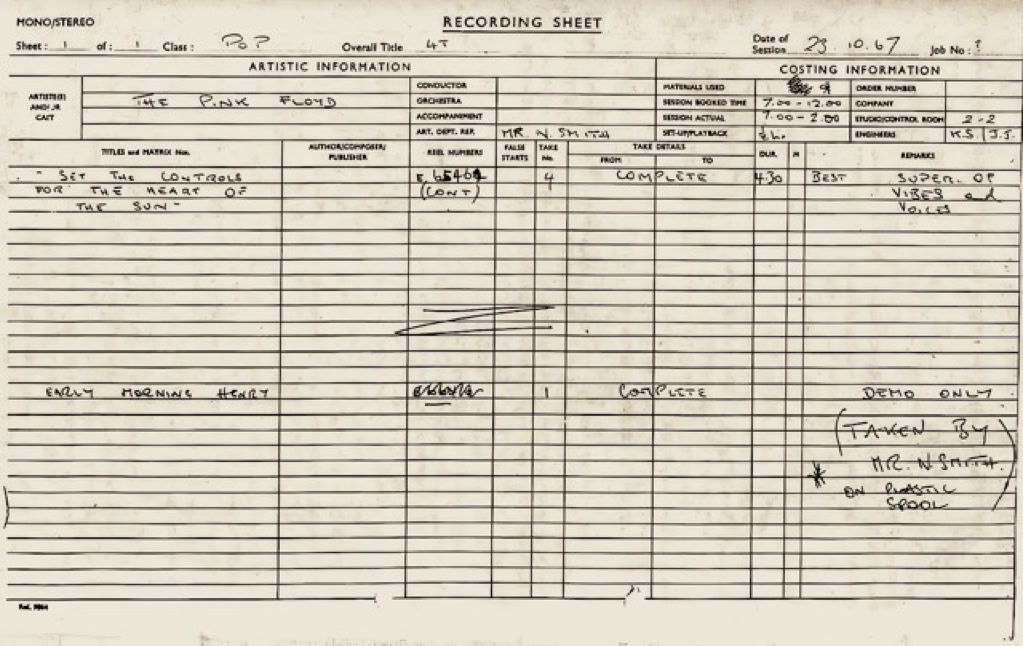 MONO/STEREO
RECORDING SHEET
Sheet: 1 of: 1 Class: POP Overall Title 4T Date of Session 23.10.67 Job No: ?
ARTISTIC INFORMATION COSTING INFORMATION
ARTISTE(S) AND/OR CAST THE PINK FLOYD
CONDUCTOR MATERIALS USED ORDER NUMBER
ORCHESTRA SESSION BOOKED TIME 7.00 - 12.00 COMPANY
ACCOMPANEMENT SESSION ACTUAL 7.00 - 2.00 STUDIO/CONTROL ROOM 2-2
ART. DEPT. REP. MR. N. SMITH SET-UP/PLAYBACK ENGINEERS K.S J.S.
TITLES and MATRIX Nos. AUTHOR/COMPOSER/ PUBLISHER REEL NUMBERS FALSE STARTS TAKE No. TAKE DETAILS FROM TO DUR. M REMARKS
"SET THE CONTROLS 4 COMPLETE 4.30 BEST SUPER. OF
FOR THE HEART OF (CONT) VIBES and
THE SUN" VOICES
EARLY MORNING HENRY 1 COMPLETE DEMO ONLY
(TAKEN BY
* MR. N SMITH.
ON PLASTIC
SPOOL)